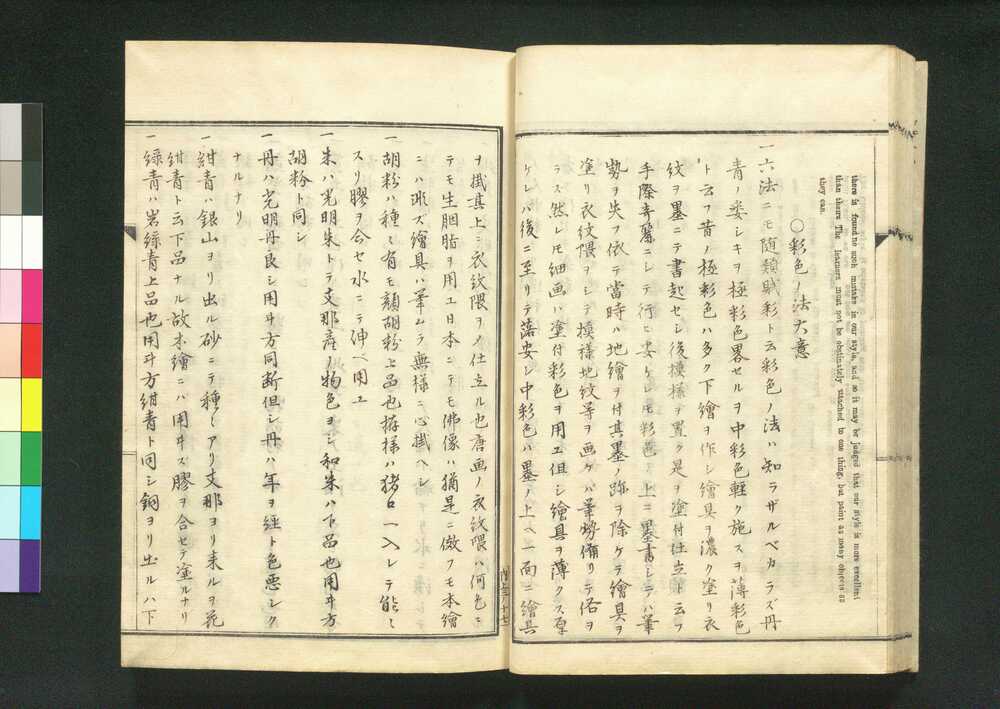 there is found no such mistake in our style, and so it may be judged that our style is more excellent
than theirs The learners must not be obstinately attached to one thing, but paint as many objects as
they can.
〇彩色ノ法大意
一六法ニモ随類賦彩ト云彩色ノ法ハ知ラザルベカラズ丹
青ノ委シキヲ極彩色畧セルヲ中彩色軽ク施スヲ薄彩色
ト云フ昔ノ極彩色ハ多ク下繪ヲ作シ繪具ヲ濃ク塗リ衣
紋ヲ墨ニテ書起セシ後模様ヲ置ク是ヲ塗付仕立ト云フ
手際奇麗ニシテ行ヒ安ケレ𪜈彩色ノ上ニ墨書シテハ筆
勢ヲ失フ依テ當時ハ地繪ヲ付其墨ノ跡ヲ除ケテ繪具ヲ
塗リ衣紋隈ヲシテ模様地紋等ヲ画ケバ筆勢備リテ俗ヲ
ラス然レ𪜈細画ハ塗付彩色ヲ用ユ但シ繪具ヲ薄クス厚
ケレバ後ニ至リテ落安シ中彩色ハ墨ノ上ヘ一面ニ繪具
ヲ掛其上ニ衣紋隈ヲノミ仕立ル也唐画ノ衣紋隈ハ何色ニ
テモ生臙脂ヲ用ユ日本ニテモ佛像ハ猶是ニ倣フモ本繪
ニハ 繪具ハ筆ムラ無様ニ心掛ヘシ
一胡粉ハ種〻有モ顔胡粉上品也拵様ハ猪口ヘ入レテ能〻
スリ膠ヲ合セ水ニテ伸ヘ用ユ
一朱ハ光明朱トテ支那産ノ物色ヨシ和朱ハ下品也用ヰ方
胡粉ト同シ
一丹ハ光明丹良シ用ヰ方同断但シ丹ハ年ヲ經ト色悪シク
ナルナリ
一紺青ハ銀山ヨリ出ル砂ニテ種〻アリ支那ヨリ来ルヲ花
紺青ト云下品ナル故本繪ニハ用ヰズ膠ヲ合セテ塗ルナリ
一緑青ハ岩緑青上品也用ヰ方紺青ト同シ銅ヨリ出ルハ下